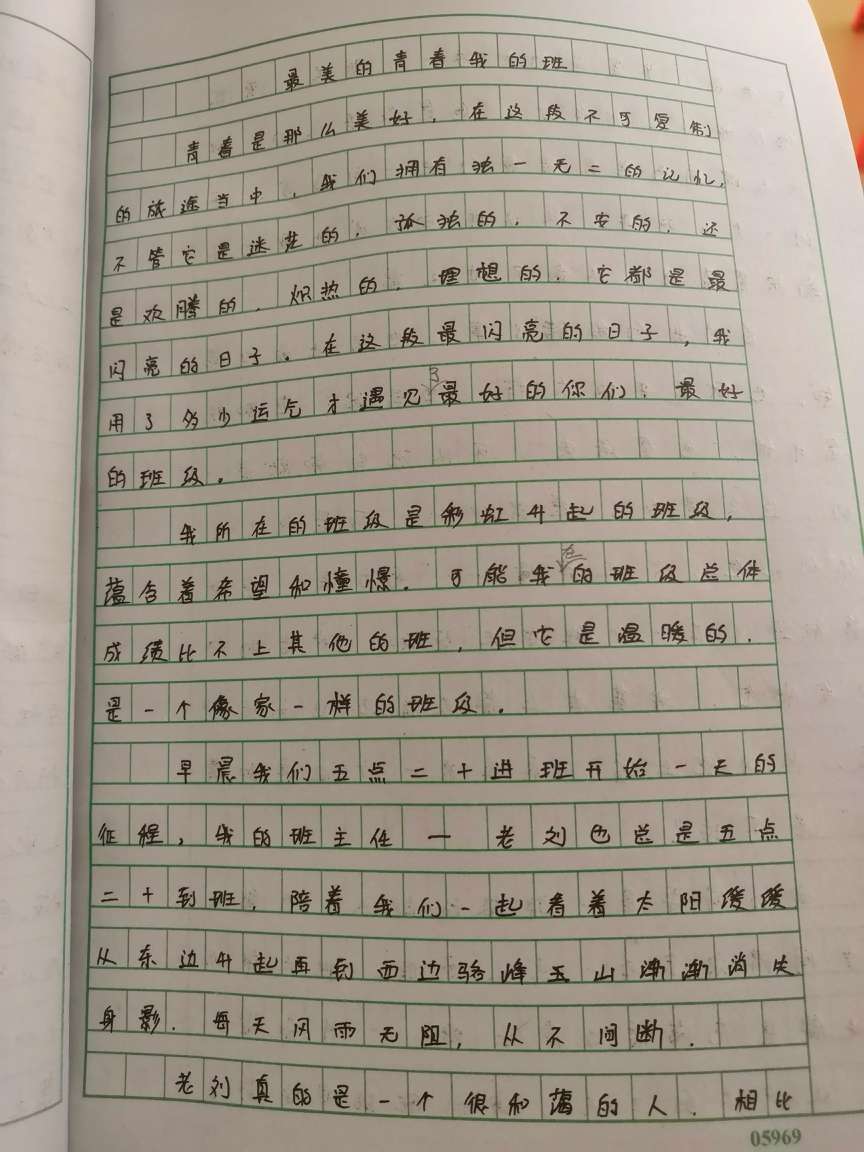 最美的青春我的班
青春是那么美好，在这段不可复制
的旅途当中，我们拥有独一无二的记忆，
不管它是迷茫的，孤独的，不安的，还
是欢腾的，炽热的，理想的，它都是最
闪亮的日子。在这段最闪亮的日子，我
用了多少运气才遇见了最好的你们，最好
的班级。
我所在的班级是彩虹升起的班级，
蕴含着希望和憧憬。可能我在的班级总体
成绩比不上其他的班，但它是温暖的，
是一个像家一样的班级。
早晨我们五点二十进班开始一天的
征程，我的班主任一老刘也总是五点
二十到班，陪着我们一起看着太阳缓缓
从东边升起再到西边骆峰玉山渐渐消失
身影，每天风雨无阻，从不间断。
老刘真的是一个很和蔼的人，相比
05969